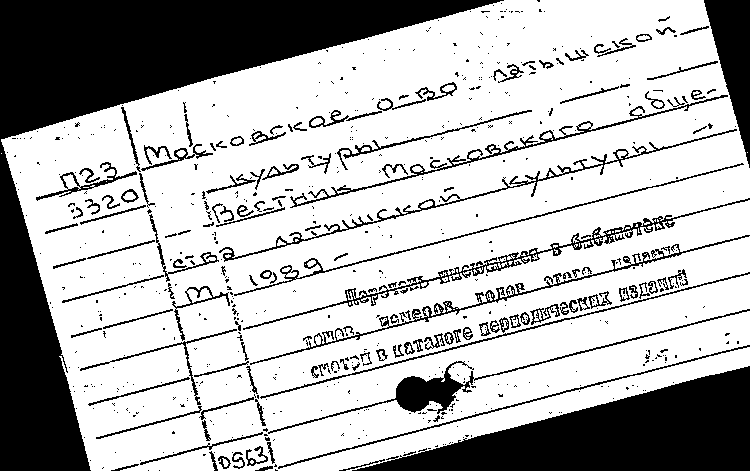 П23
3320
Московское о-во латышской
культуры.
Вестник Московского обще-
ства латышской культуры. —
М., 1989 —
Перечень имеющихся в библиотеке
томов, номеров, годов этого издания
смотри в каталоге периодических изданий
0963